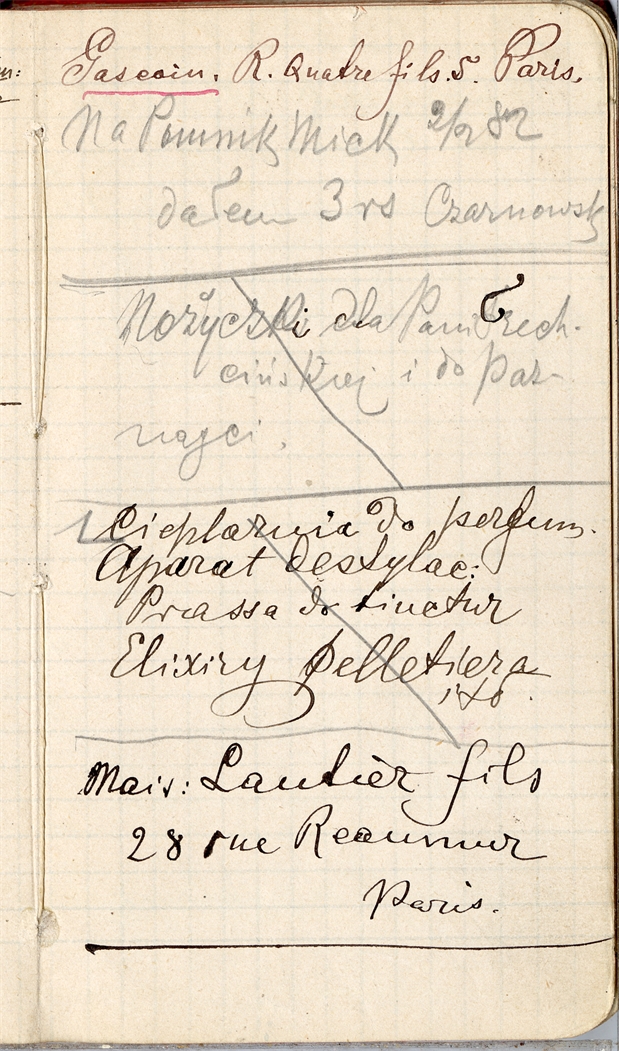 Gascoin. R. Quatre fils. 5. Paris.
Na Pomnik Mick 2/2 82
dałem 3 rs Czarnowsk
Nożyczki dla Pani Brzech-
cińskiej i do paz-
nogci.
Cieplarnia do perfum.
Aparat destylac:
Prassa do tinctur
Elixiry Pelletiera
ito.
Mais: Lautier fils
28 rue Reaumur
Paris.